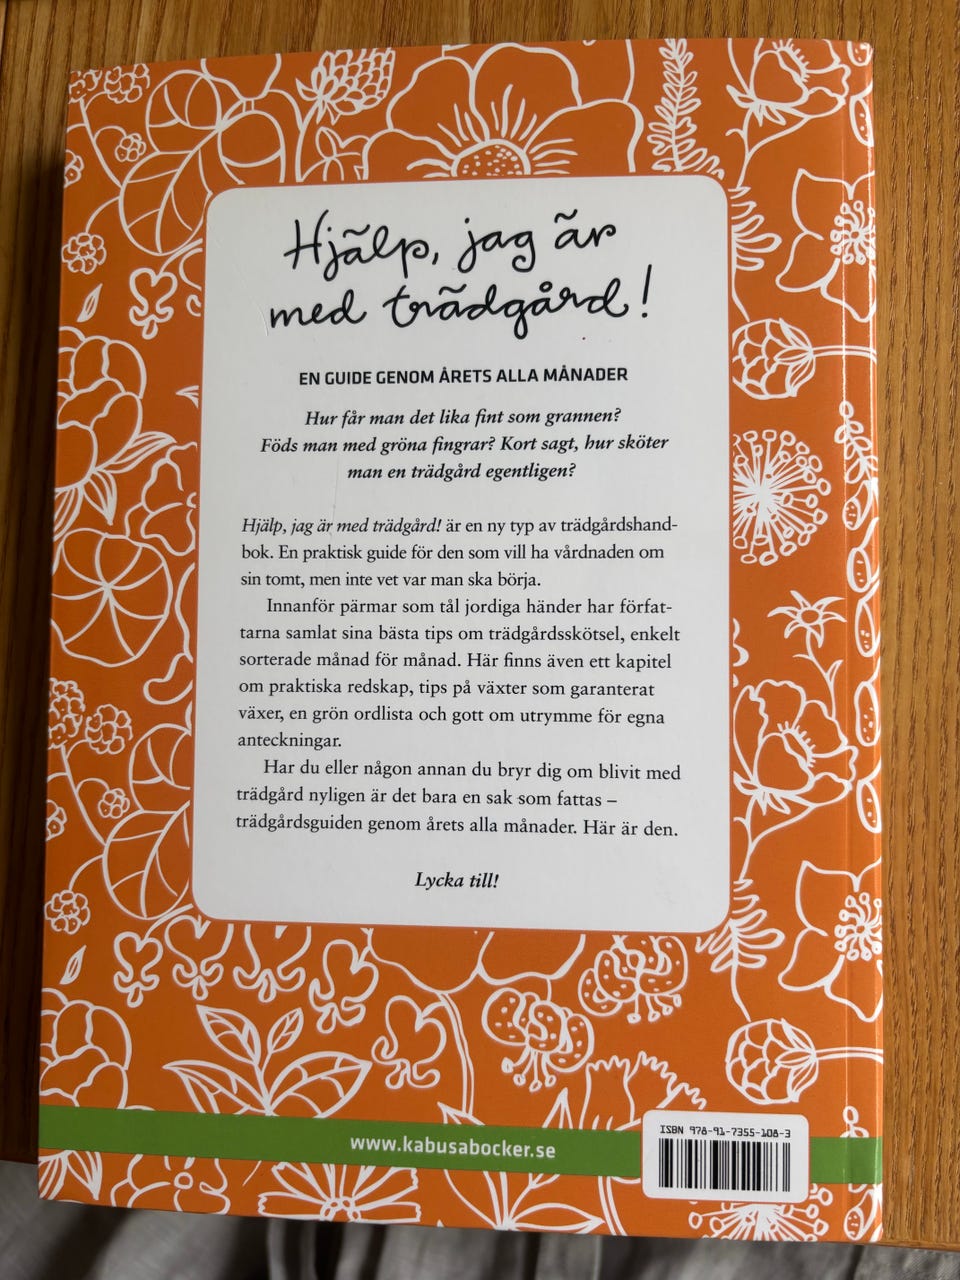 Hjälp, jag är
med trädgård!
EN GUIDE GENOM ÅRETS ALLA MÅNADER
Hur får man det lika fint som grannen?
Föds man med gröna fingrar? Kort sagt, hur sköter
man en trädgård egentligen?
Hjälp, jag är med trädgård! är en ny typ av trädgårdshand-
bok. En praktisk guide för den som vill ha vårdnaden om
sin tomt, men inte vet var man ska börja.
Innanför pärmar som tål jordiga händer har förfat-
tarna samlat sina bästa tips om trädgårdsskötsel, enkelt
sorterade månad för månad. Här finns även ett kapitel
om praktiska redskap, tips på växter som garanterat
växer, en grön ordlista och gott om utrymme för egna
anteckningar.
Har du eller någon annan du bryr dig om blivit med
trädgård nyligen är det bara en sak som fattas –
trädgårdsguiden genom årets alla månader. Här är den.
Lycka till!
www.kabusabocker.se
ISBN 978-91-7355-108-3